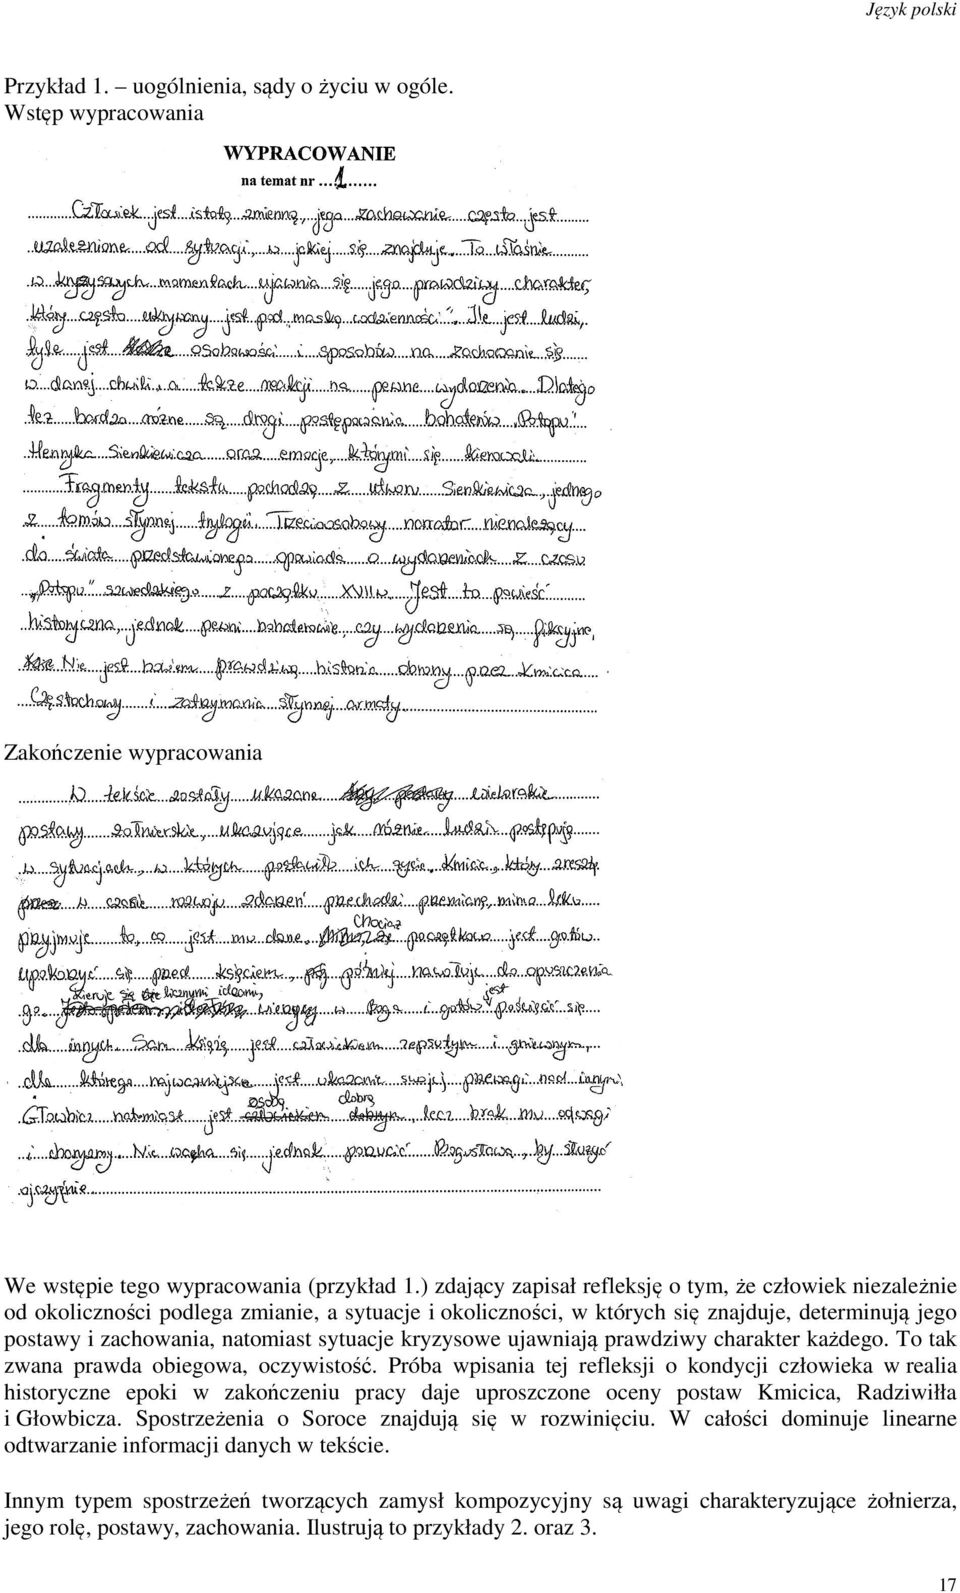 Język polski
Przykład 1. – uogólnienia, sądy o życiu w ogóle.
Wstęp wypracowania
WYPRACOWANIE
na temat nr ....1......
Człowiek jest istotą zmienną, jego zachowanie często jest
uzależnione od sytuacji, w jakiej się znajduje. To właśnie
w kryzysowych momentach ujawnia się jego prawdziwy charakter,
który często ukrywany jest pod „maską codzienności". Ile jest ludzi,
tyle jest osobowości i sposobów na zachowanie się
w danej chwili, a także reakcji na pewne wydarzenia. Dlatego
też bardzo różne są drogi postępowania bohaterów „Potopu"
Henryka Sienkiewicza oraz emocje, którymi się kierowali.
Fragmenty tekstu pochodzą z utworu Sienkiewicza, jednego
z tomów słynnej trylogii. Trzecioosobowy narrator nienależący
do świata przedstawionego opowiada o wydarzeniach z czasu
„Potopu" szwedzkiego z początku XVII w. Jest to powieść
historyczna, jednak pewni bohaterowie, czy wydarzenia są fikcyjne,
Nie jest bowiem prawdziwą historia obrony przez Kmicica
Częstochowy i zatrzymania słynnej armaty.
Zakończenie wypracowania
W tekście zostały ukazane wielorakie
postawy żołnierskie, ukazujące jak różnie ludzie postępują
w sytuacjach, w których postawiło ich życie. Kmicic, który zresztą
w czasie rozwoju zdarzeń przechodzi przemianę, mimo lęku
przyjmuje to, co jest mu dane. Chociaż początkowo jest gotów
upokorzyć się przed księciem, później nawołuje do opuszczenia
go. Kieruje się licznymi ideami, wierzący w Boga i gotów jest poświęcić się
dla innych. Sam Książę jest człowiekiem zepsutym i gniewnym,
dla którego najważniejsze jest ukazanie swojej przewagi nad innymi.
Głowbicz natomiast jest osobą dobrą, lecz brak mu odwagi
i charyzmy. Nie waha się jednak porzucić Bogusława, by służyć
ojczyźnie.
We wstępie tego wypracowania (przykład 1.) zdający zapisał refleksję o tym, że człowiek niezależnie
od okoliczności podlega zmianie, a sytuacje i okoliczności, w których się znajduje, determinują jego
postawy i zachowania, natomiast sytuacje kryzysowe ujawniają prawdziwy charakter każdego. To tak
zwana prawda obiegowa, oczywistość. Próba wpisania tej refleksji o kondycji człowieka w realia
historyczne epoki w zakończeniu pracy daje uproszczone oceny postaw Kmicica, Radziwiłła
i Głowbicza. Spostrzeżenia o Soroce znajdują się w rozwinięciu. W całości dominuje linearne
odtwarzanie informacji danych w tekście.
Innym typem spostrzeżeń tworzących zamysł kompozycyjny są uwagi charakteryzujące żołnierza,
jego rolę, postawy, zachowania. Ilustrują to przykłady 2. oraz 3.
17